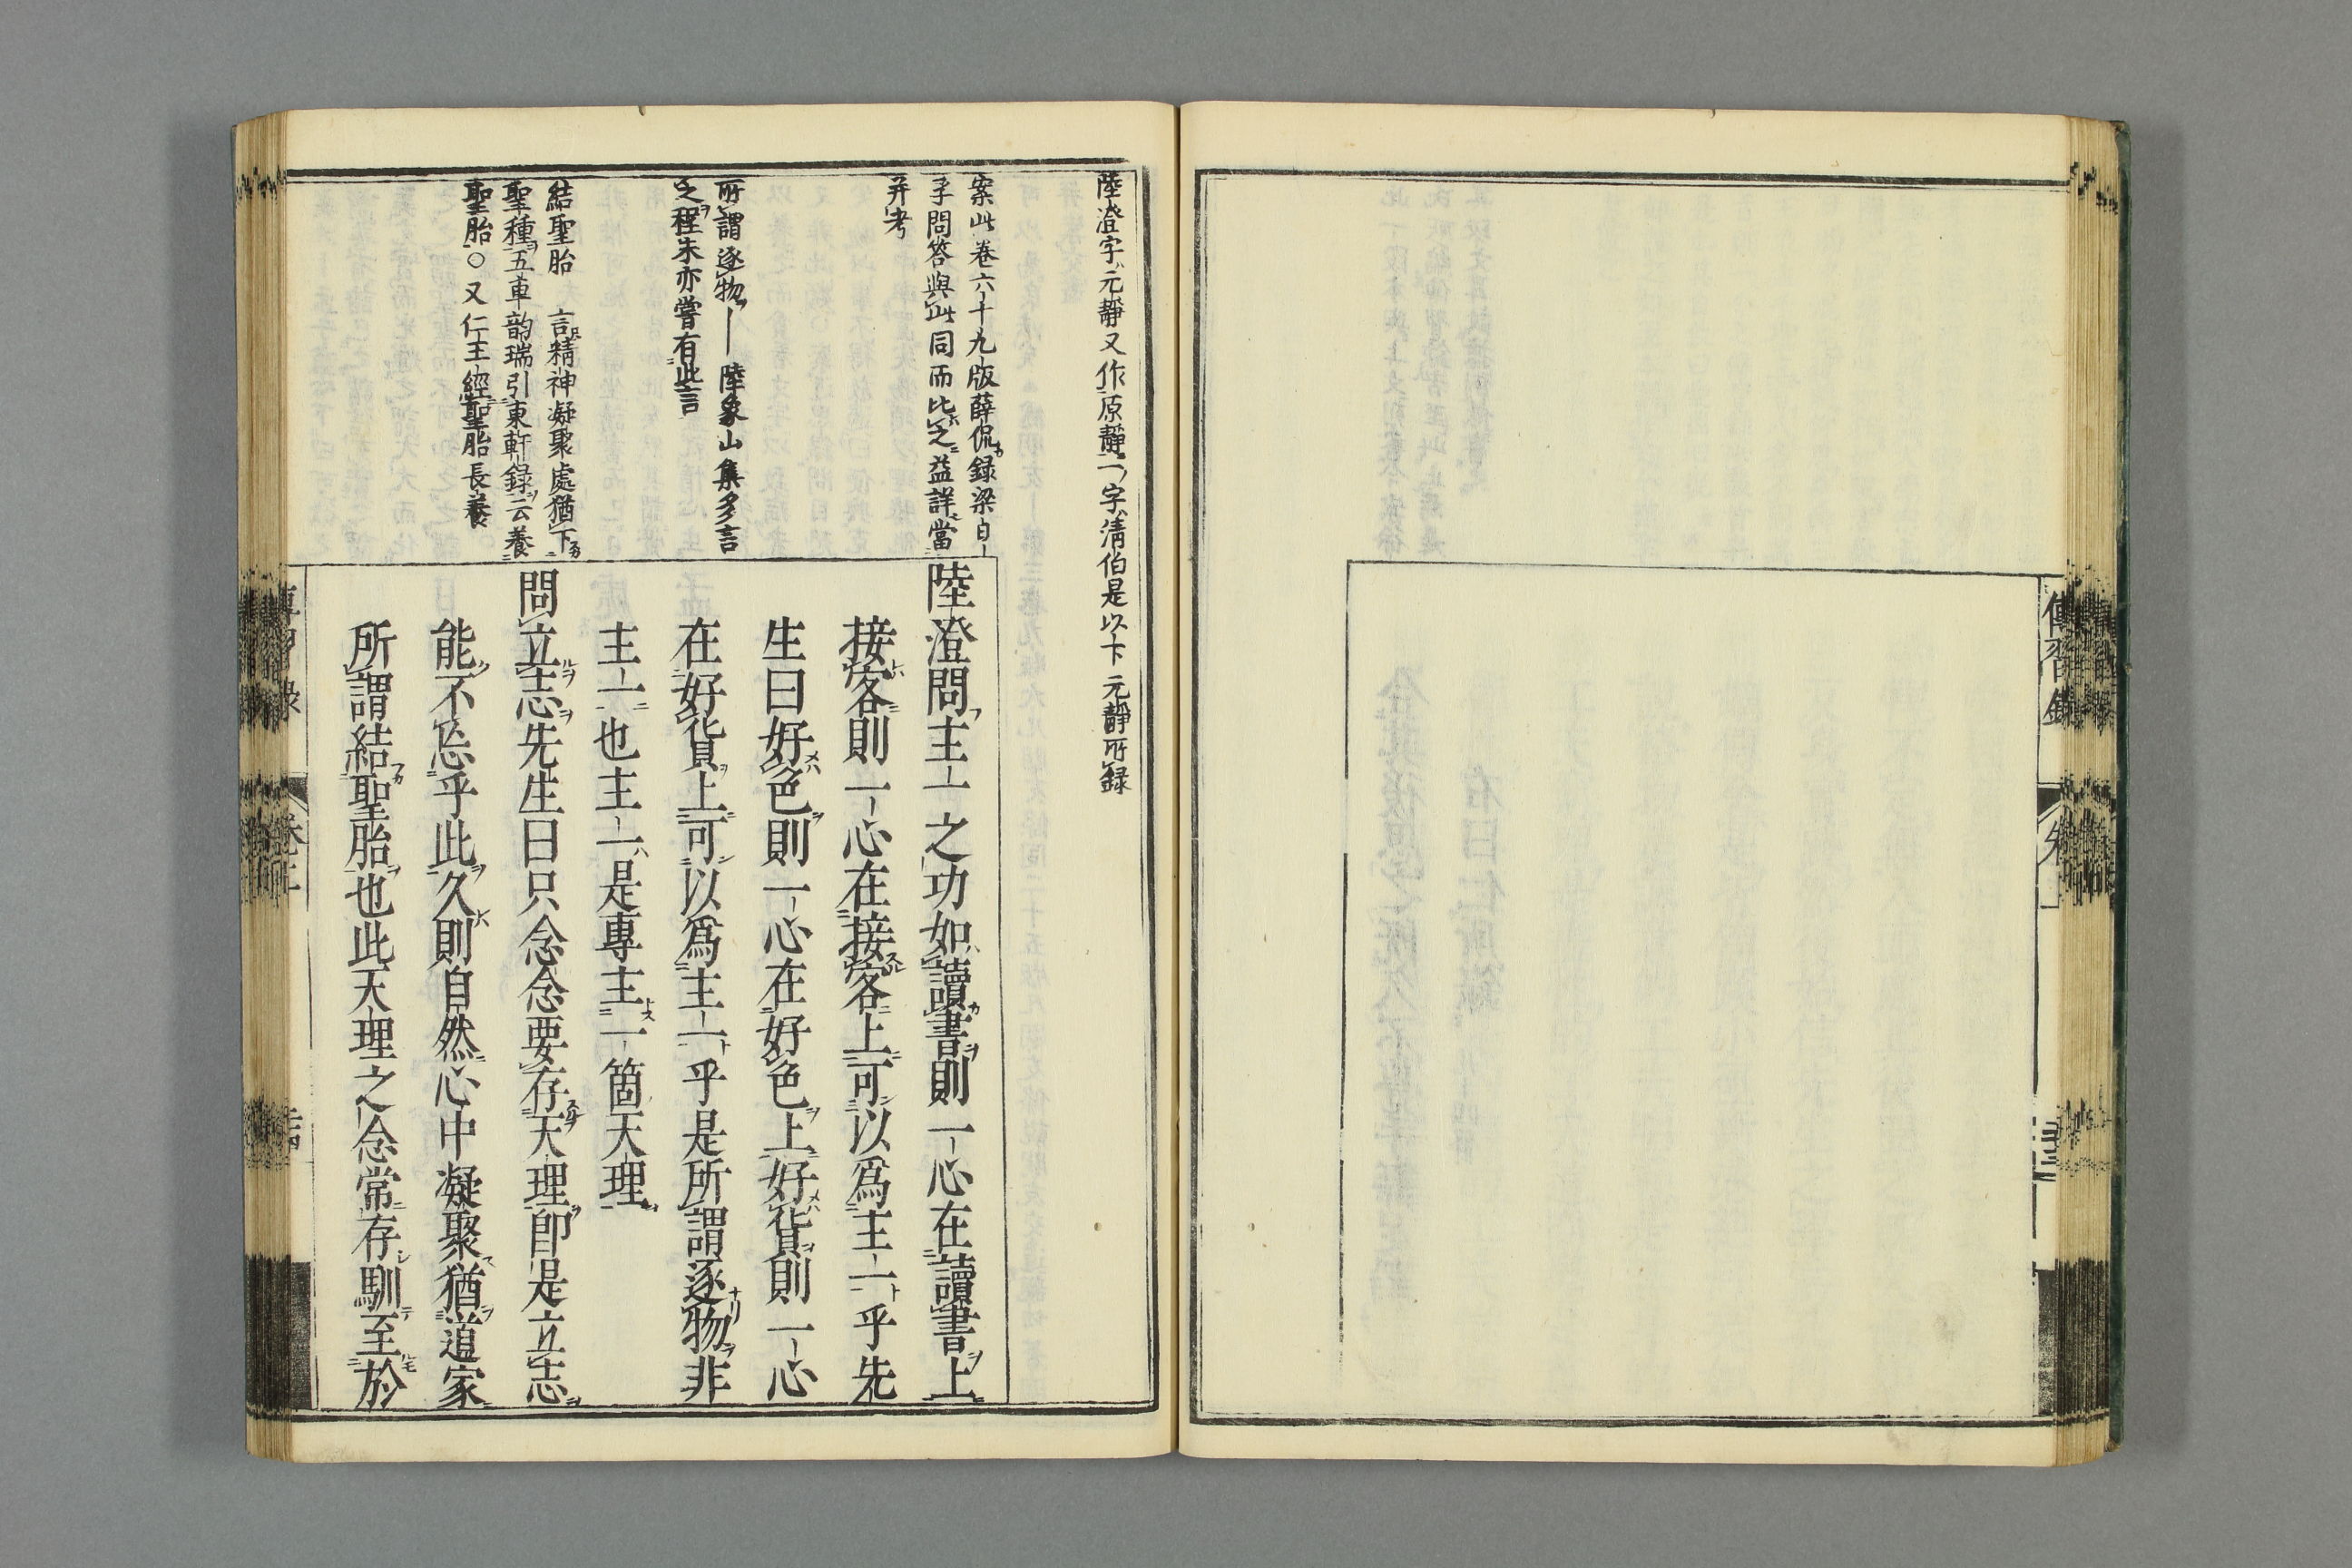 傳習錄
陸澄字元靜又作原靜一字清伯是以下元靜所錄
案此卷六十九版薛侃錄梁日
孚問答與此同而比之益詳當
并考
所謂逐物 陸象山集多言
之程朱亦嘗有此言
結聖胎 言精神凝聚處猶下
聖種五車韵瑞引東軒錄云養
聖胎○又仁王經聖胎長養
陸澄問主一之功如讀書則一心在讀書上
接客則一心在接客上可以爲主一乎先
生曰好色則一心在好色上好貨則一心
在好貨上可以爲主一乎是所謂逐物非
主一也主一是專主一箇天理
問立志先生曰只念念要存天理卽是立志
能不忘乎此久則自然心中凝聚猶道家
所謂結聖胎也此天理之念常存馴至於